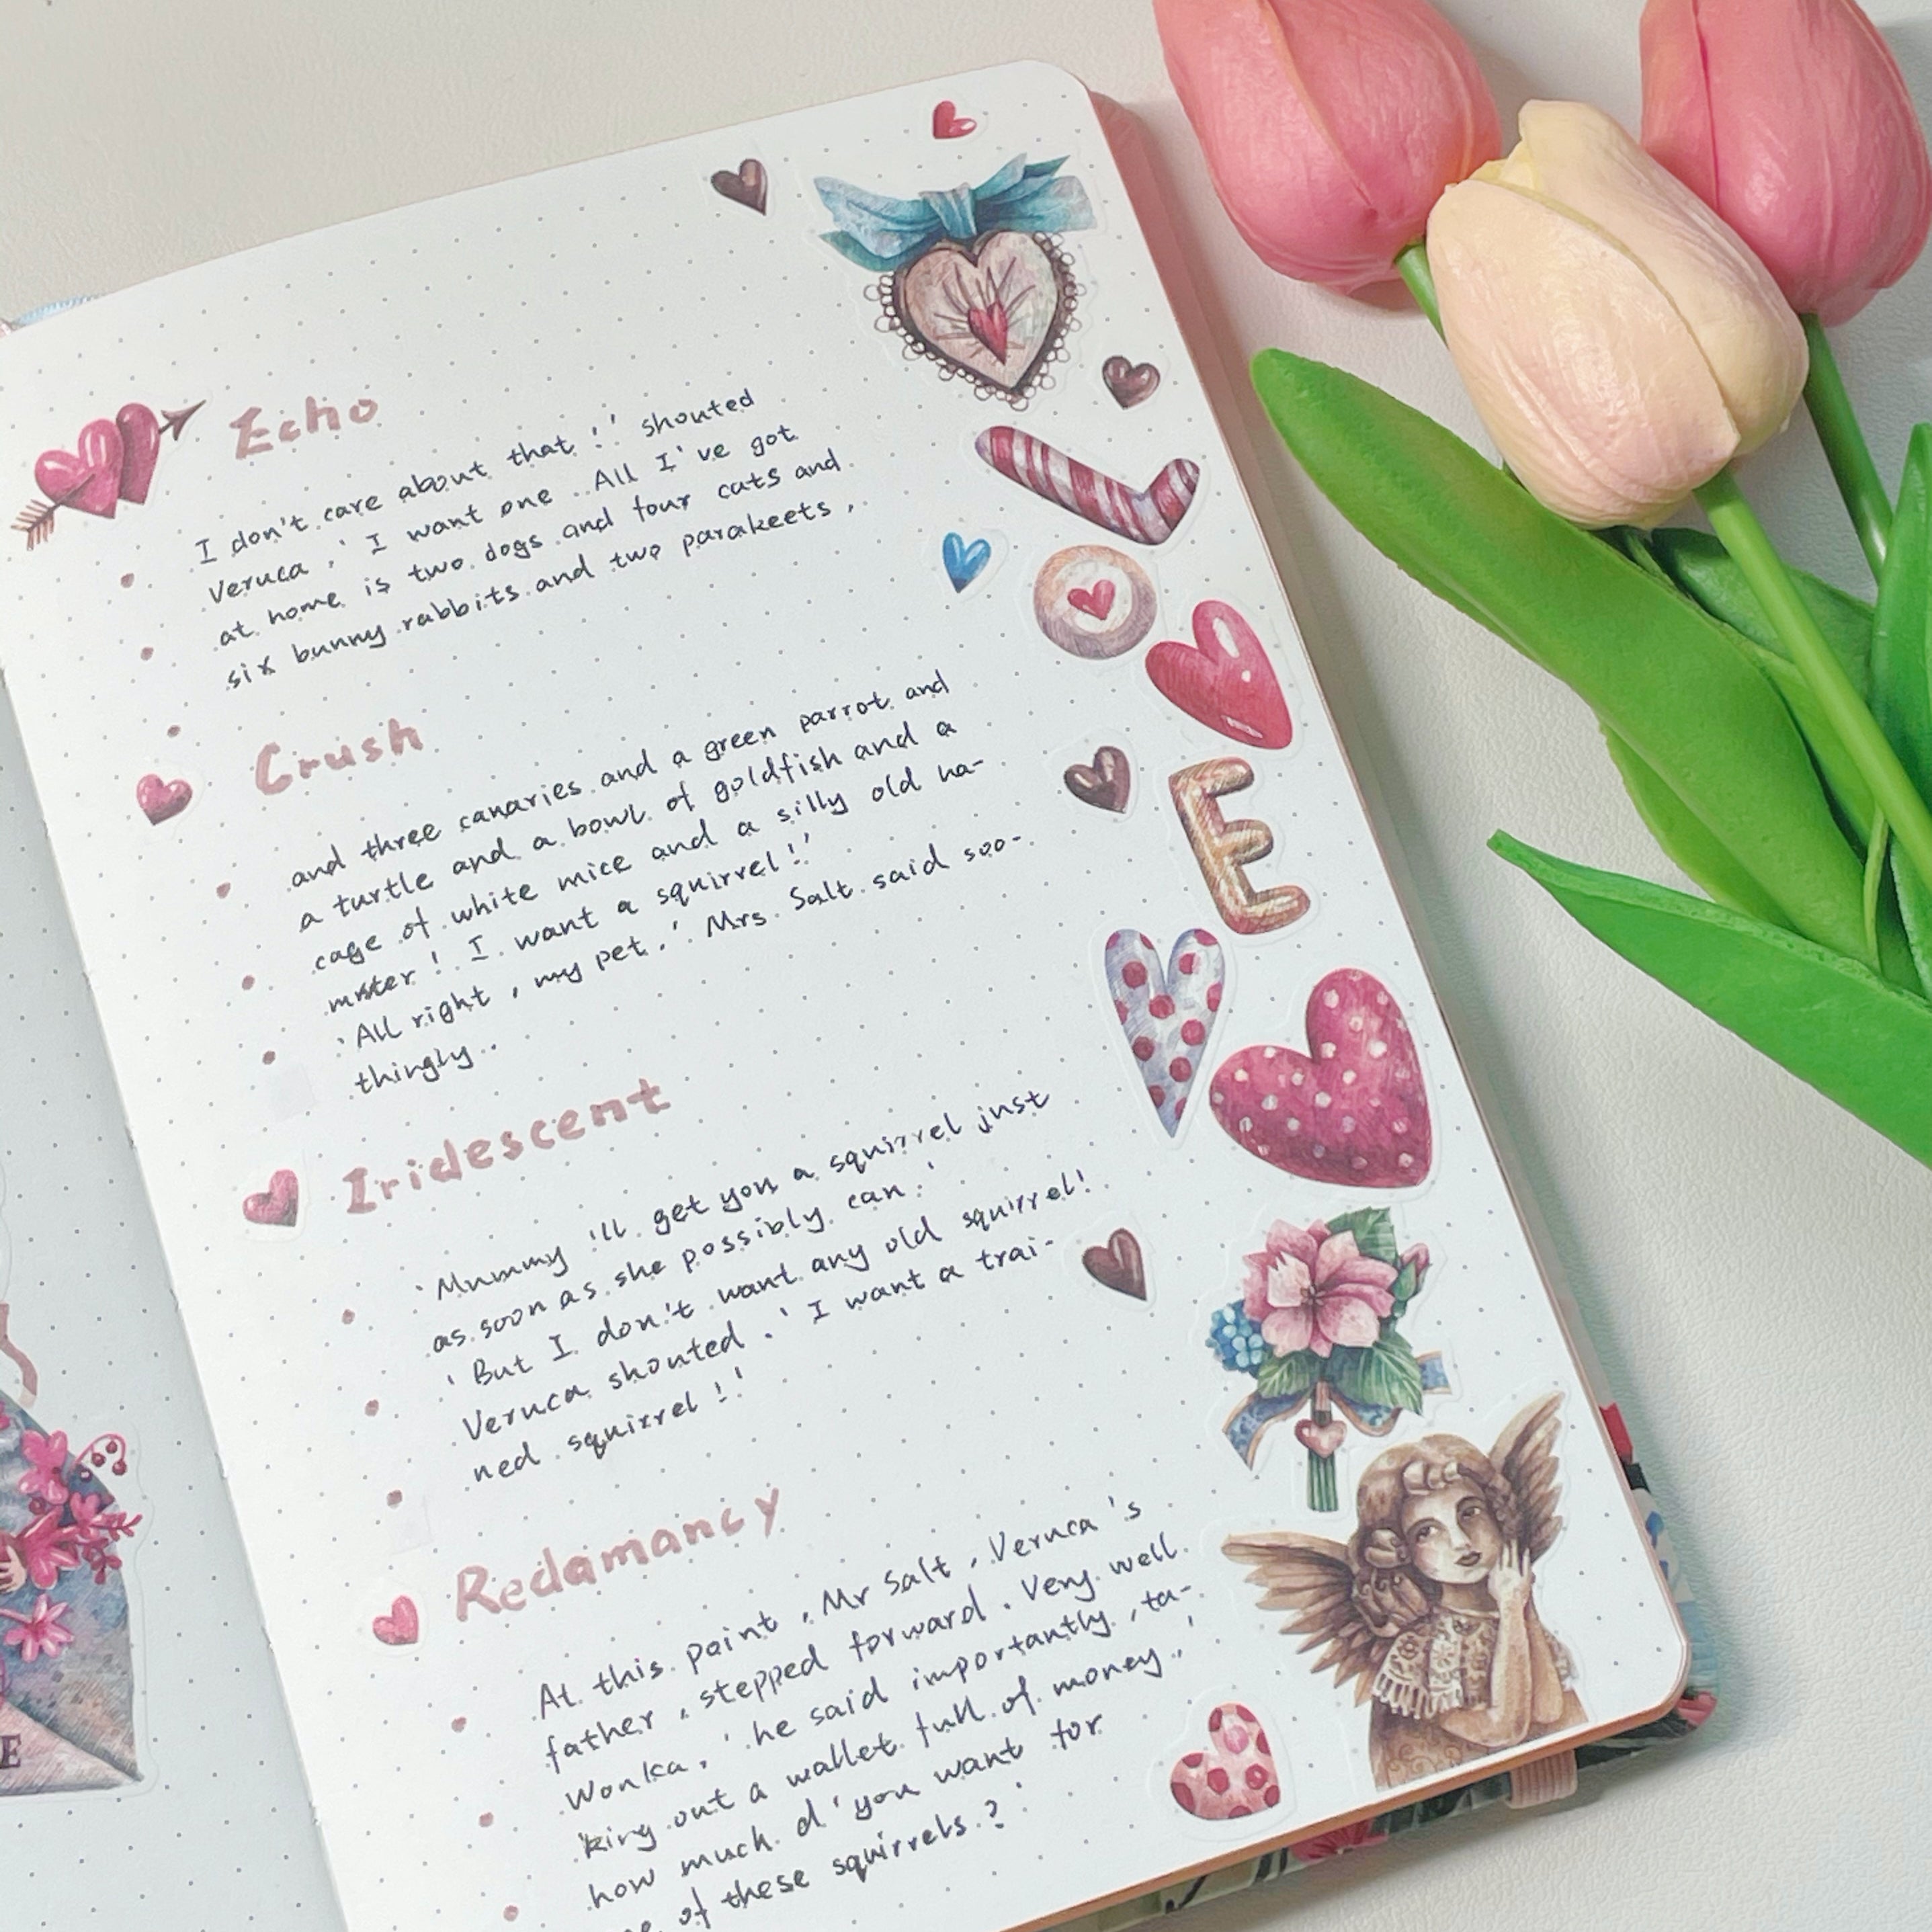 Echo
I don't care about that!' shouted
Veruca.' I want one. All I've got
at home is two dogs and four cats and
six bunny rabbits and two parakeets,
Crush
and three canaries and a green parrot and
a turtle and a bowl of goldfish and a
cage of white mice and a silly old ha-
mster! I want a squirrel!'
'All right, my pet.' Mrs Salt said soo-
thingly.
Iridescent
'Mummy 'll get you a squirrel just
as soon as she possibly can.'
'But I don't want any old squirrel!
Veruca shouted.' I want a trai-
ned squirrel!'
Redamancy
At this point, Mr Salt, Veruca's
father, stepped forward. Very well
Wonka,' he said importantly, ta-
king out a wallet full of money,'
how much d'you want for
of these squirrels?'
LOVE
E